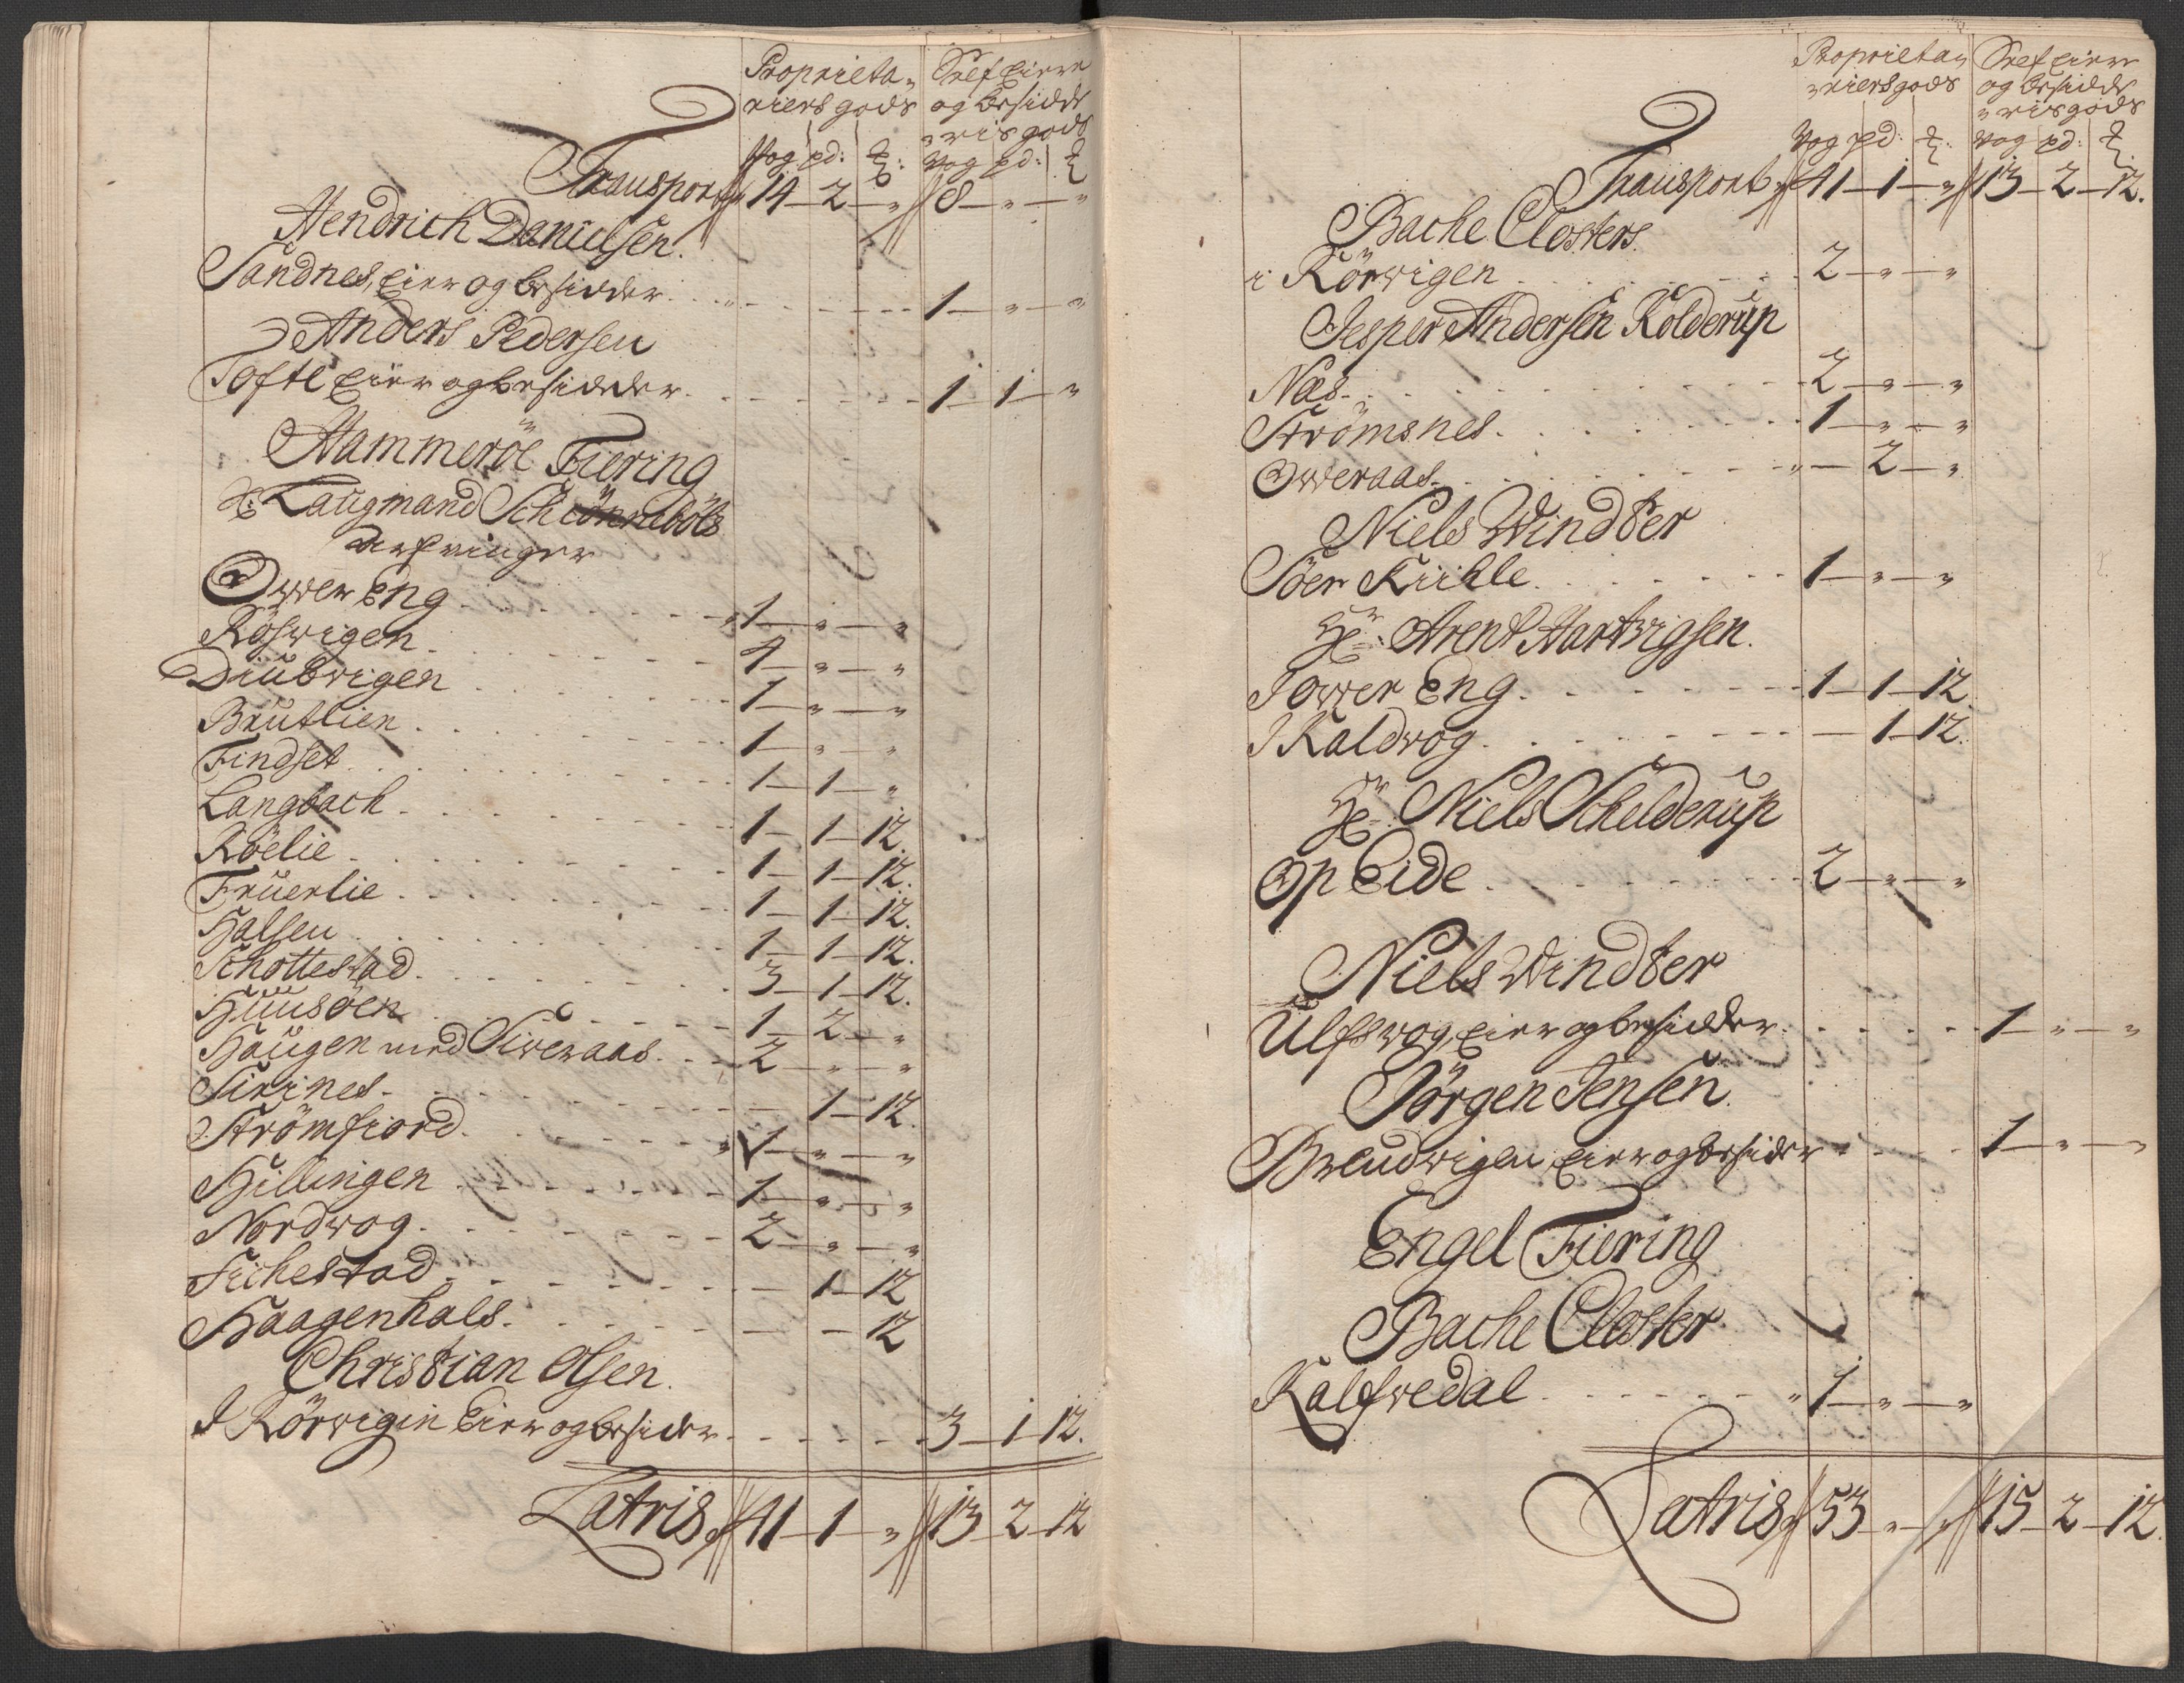 Proprieta-
riers gods
Self Eiere
og besidde
ris gods
Vog pd: ℔: Vog pd: ℔
Transport 14 — 2 — „ 8 — „ — „
Hendrich Danielsen.
Sandnes, Eier og besidder. . . . 1 — „ — „
Anders Pedersen
Tofte Eier og besidder. . . . 1 — 1 — „
Hammeröe Fiering
Hr: Laugmand Schiönneböls
Arfvinger
Owver Eng . . . 1 — „ — „
Röswigen . . . 4 — „ — „
Diubwigen . . . 1 — „ — „
Brutlien . . . 1 — „ — „
Findset . . . 1 — 1 — „
Langbach . . . 1 — 1 — 12.
Röelie . . . 1 — 1 — 12.
Fruerlie . . . 1 — 1 — 12.
Halsen . . . 1 — 1 — 12.
Schottestad . . . 3 — 1 — 12.
Huusöen . . . 1 — 2 — „
Haugen med Siveraas . . . 2 — „ — „
Sirines . . . — 1 — 12.
Strömfiord . . . 1 — „ — „
Hillingen . . . 1 — „ — „
Nordvog . . . 2 — „ — „
Fichestad . . . — 1 — 12
Haagenhals . . . — — 12
Christian Olsen.
I Körwigin Eier og besider . . . 3 — 1 — 12.
Latris 41 — 1 — „ 13 — 2 — 12
Proprieta-
riers gods
Self Eiere
og besidde
ris gods
Vog pd: ℔: Vog pd: ℔.
Transport 41 — 1 — „ 13 — 2 — 12.
Bache Closters.
i Körwigen . . . 2 — „ — „
Jesper Andersen Kolderup
Næs . . . 2 — „ — „
Strömsnes . . . 1 — „ — „
Owveraas . . . — 2 — „
Niels Windter
Söer Kiihle . . . 1 — „ — „
Hr: Arent Hartvigsen.
I owver Eng . . . 1 — 1 — 12
I Kaldvog . . . — 1 — 12.
Hr: Niels Schelderup
Op Eide . . . 2 — „ — „
Niels Windter
Ulfsvog, Eier og besidder . . . 1 — „ — „
Jörgen Jensen
Brendwigen, Eier og besider . . . 1 — „ — „
Engel Fiering
Bache Closter
Kalfvedal . . . 1 — „ — „
Latris 53 — „ — „ 15 — 2 — 12.